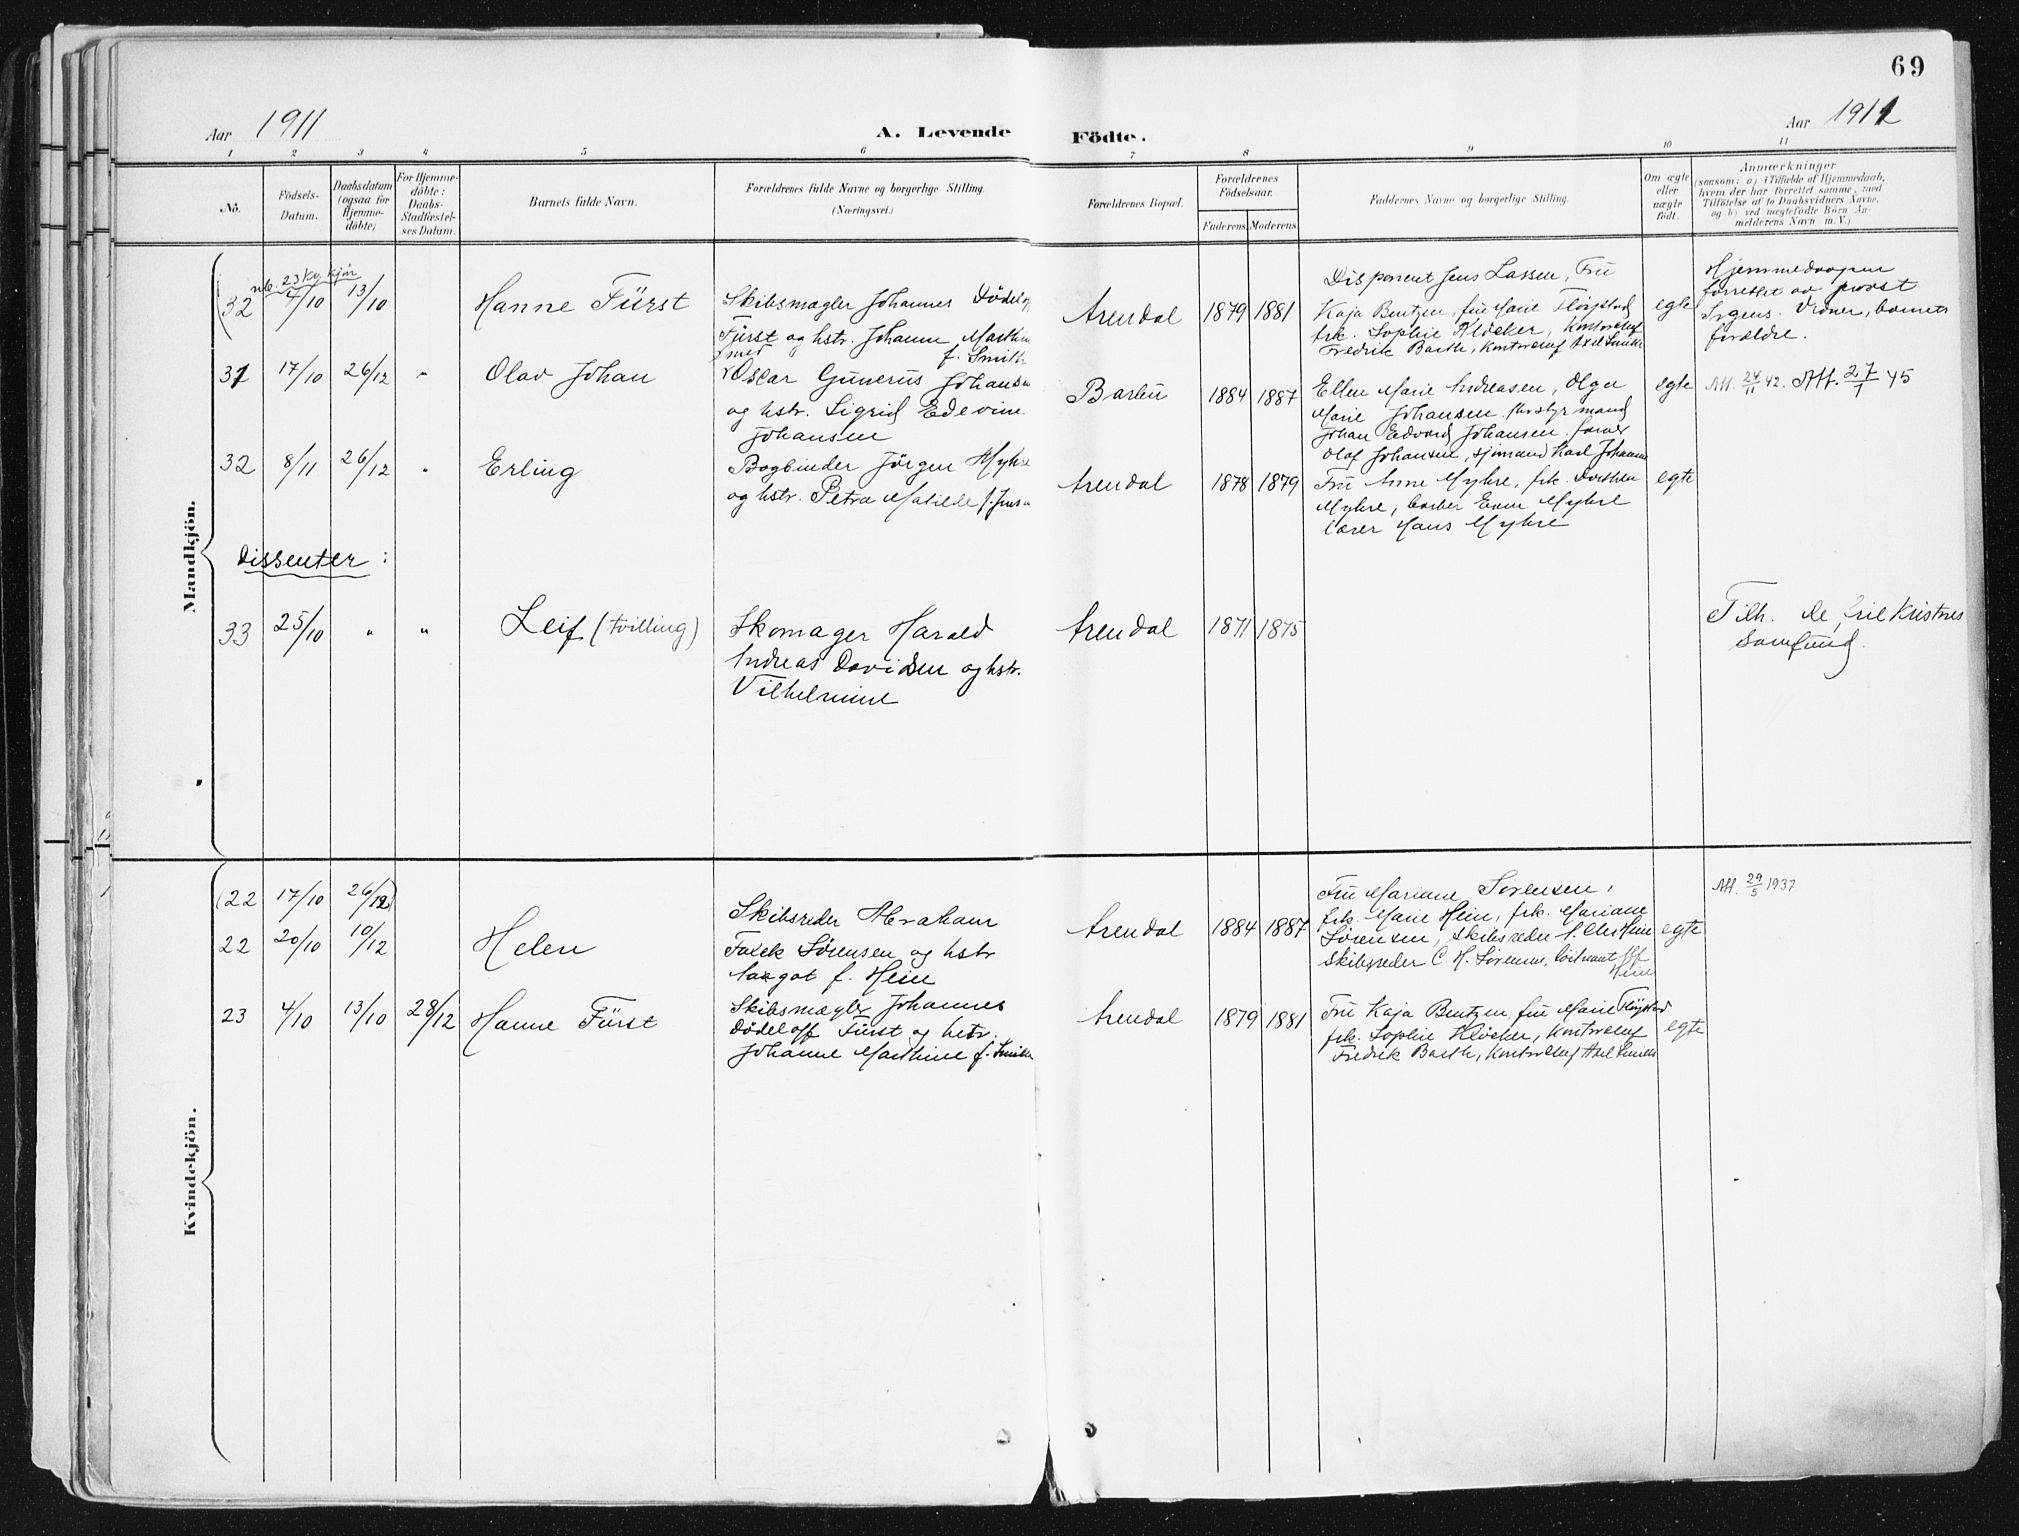 69
Aar 1911
A. Levende Födte.
Aar 1911
1 2 3 4 5 6 7 8 9 10 11
No.
Födsels-Datum.
Daabsdatum (ogsaa for Hjemme-döbte)
For Hjemme-döbte: Daabs-Stadfæstel-ses Datum.
Barnets fulde Navn.
Forældrenes fulde Navne og borgerlige Stilling. (Næringsvei.)
Forældrenes Bopæl.
Forældrenes Födselsaar.
Faderens Moderens
Faddernes Navne og borgerlige Stilling.
Om ægte eller uægte födt.
Anmærkninger
(saasom: a) i Tilfælde af Hjemmedaab, hvem der har forrettet samme, med Tilföielse af to Daabsvidners Navne, og b) ved uægtefödte Börn An-melderens Navn m. V.)
Mandkjön.
nb. 23 Kv. kjön
(32 4/10 13/10 Hanne Fürst
Skibsmægler Johannes Dödeloff
Fürst og hstr. Johanne Marthine
f. Smith
Arendal 1879 1881
Disponent Jens Lassen, Fru
Kaja Bentzen, fru Marie Fløystad
frk. Sophie Kløcker, Kontorchef
Fredrik Barth, Kontorchef Axel Smith
egte
Hjemmedaapen
forrettet av provst
Irgens. Vidner, barnets
forældre.
31 17/10 26/12 " Olav Johan
Smed
Oscar Gunerus Johansen
og hstr. Sigrid Edevine
Johansen
Barbu 1884 1887
Ellen Marie Andreasen, Olga
Marie Johansen, styrmand
Johan Edvard Johansen, farver
Olaf Johansen, sjömand Karl Johansen
egte
Att. 24/11 42. Att. 27/1 45
32 8/11 26/12 " Erling
Bogbinder Jörgen Myhre
og hstr. Petra Matilde f. Jensen
Arendal 1878 1879
Fru Anne Myhre, frk. Dorthea
Myhre, barber Even Myhre
Hans Myhre
egte
Dissenter:
33 25/10 " " Leif (tvilling)
Skomager Harald
Andreas Davidsen og hstr.
Vilhelmine
Arendal 1871 1875
Tilh. de frie Kristnes
Samfund.
Kvindekjön.
(22 17/10 26/12)
22 20/10 10/12 Helen
Skibsreder Abraham
Falck Sørensen og hstr
Aagot f. Hein
Arendal 1884 1887
Fru Mariane Sørensen,
frk. Marie Hein, frk. Mariane
Sørensen, skibsreder Hein
skibsreder C. H. Sørensen, löitnant
Hein
egte
Att. 29/5 1937
23 4/10 13/10 28/12 Hanne Fürst
Skibsmægler Johannes
Dödeloff Fürst og hstr.
Johanne Marthine f. Smith
Arendal 1879 1881
Fru Kaja Bentzen, fru Marie Fløystad
frk. Sophie Kløcker, Kontorchef
Fredrik Barth, Kontorchef Axel Smith
egte